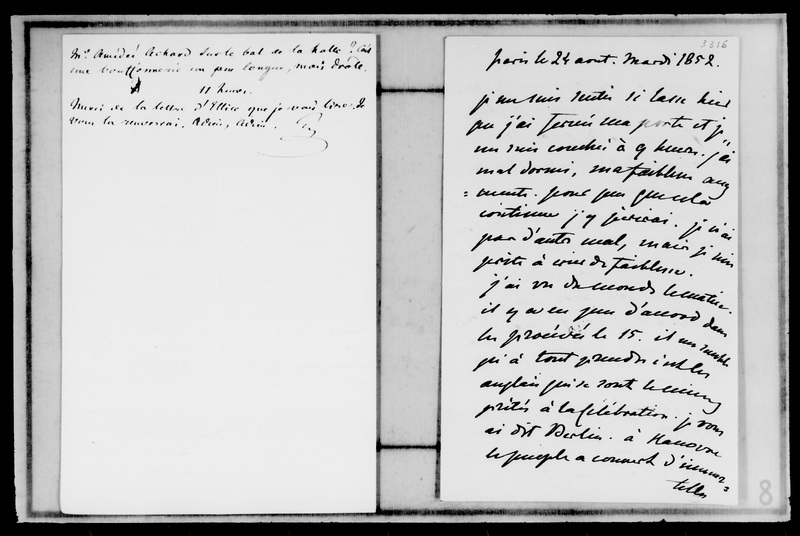 Mr Amédée Achard sur le bal de la halle ? C'est
une bouffonnerie un peu longue, mais drôle.
11 heures.
Merci de la lettre d'Ellice que je vous
vous la renverrai. Adieu, Adieu. G
3316
Paris le 24 aout. Mardi 1852.
je me suis sentie si lasse hier
que j'ai fermé ma porte et je
me suis couchée à 9 heures. j'ai
mal dormi, ma faiblesse aug
= mente. pour peu que cela
continue j'y périrai. je n'ai
pas d'autre mal, mais je suis
prête à crier de faiblesse.
j'ai vu du monde le matin.
il y a eu peu d'accord dans
les procédés le 15. il me semble
qu'à tout prendre c'est les
anglais qui se sont le mieux
prêtés à la célébration. je vous
ai dit Berlin. à Hanovre
le peuple a couvert d'immor =
telles
8